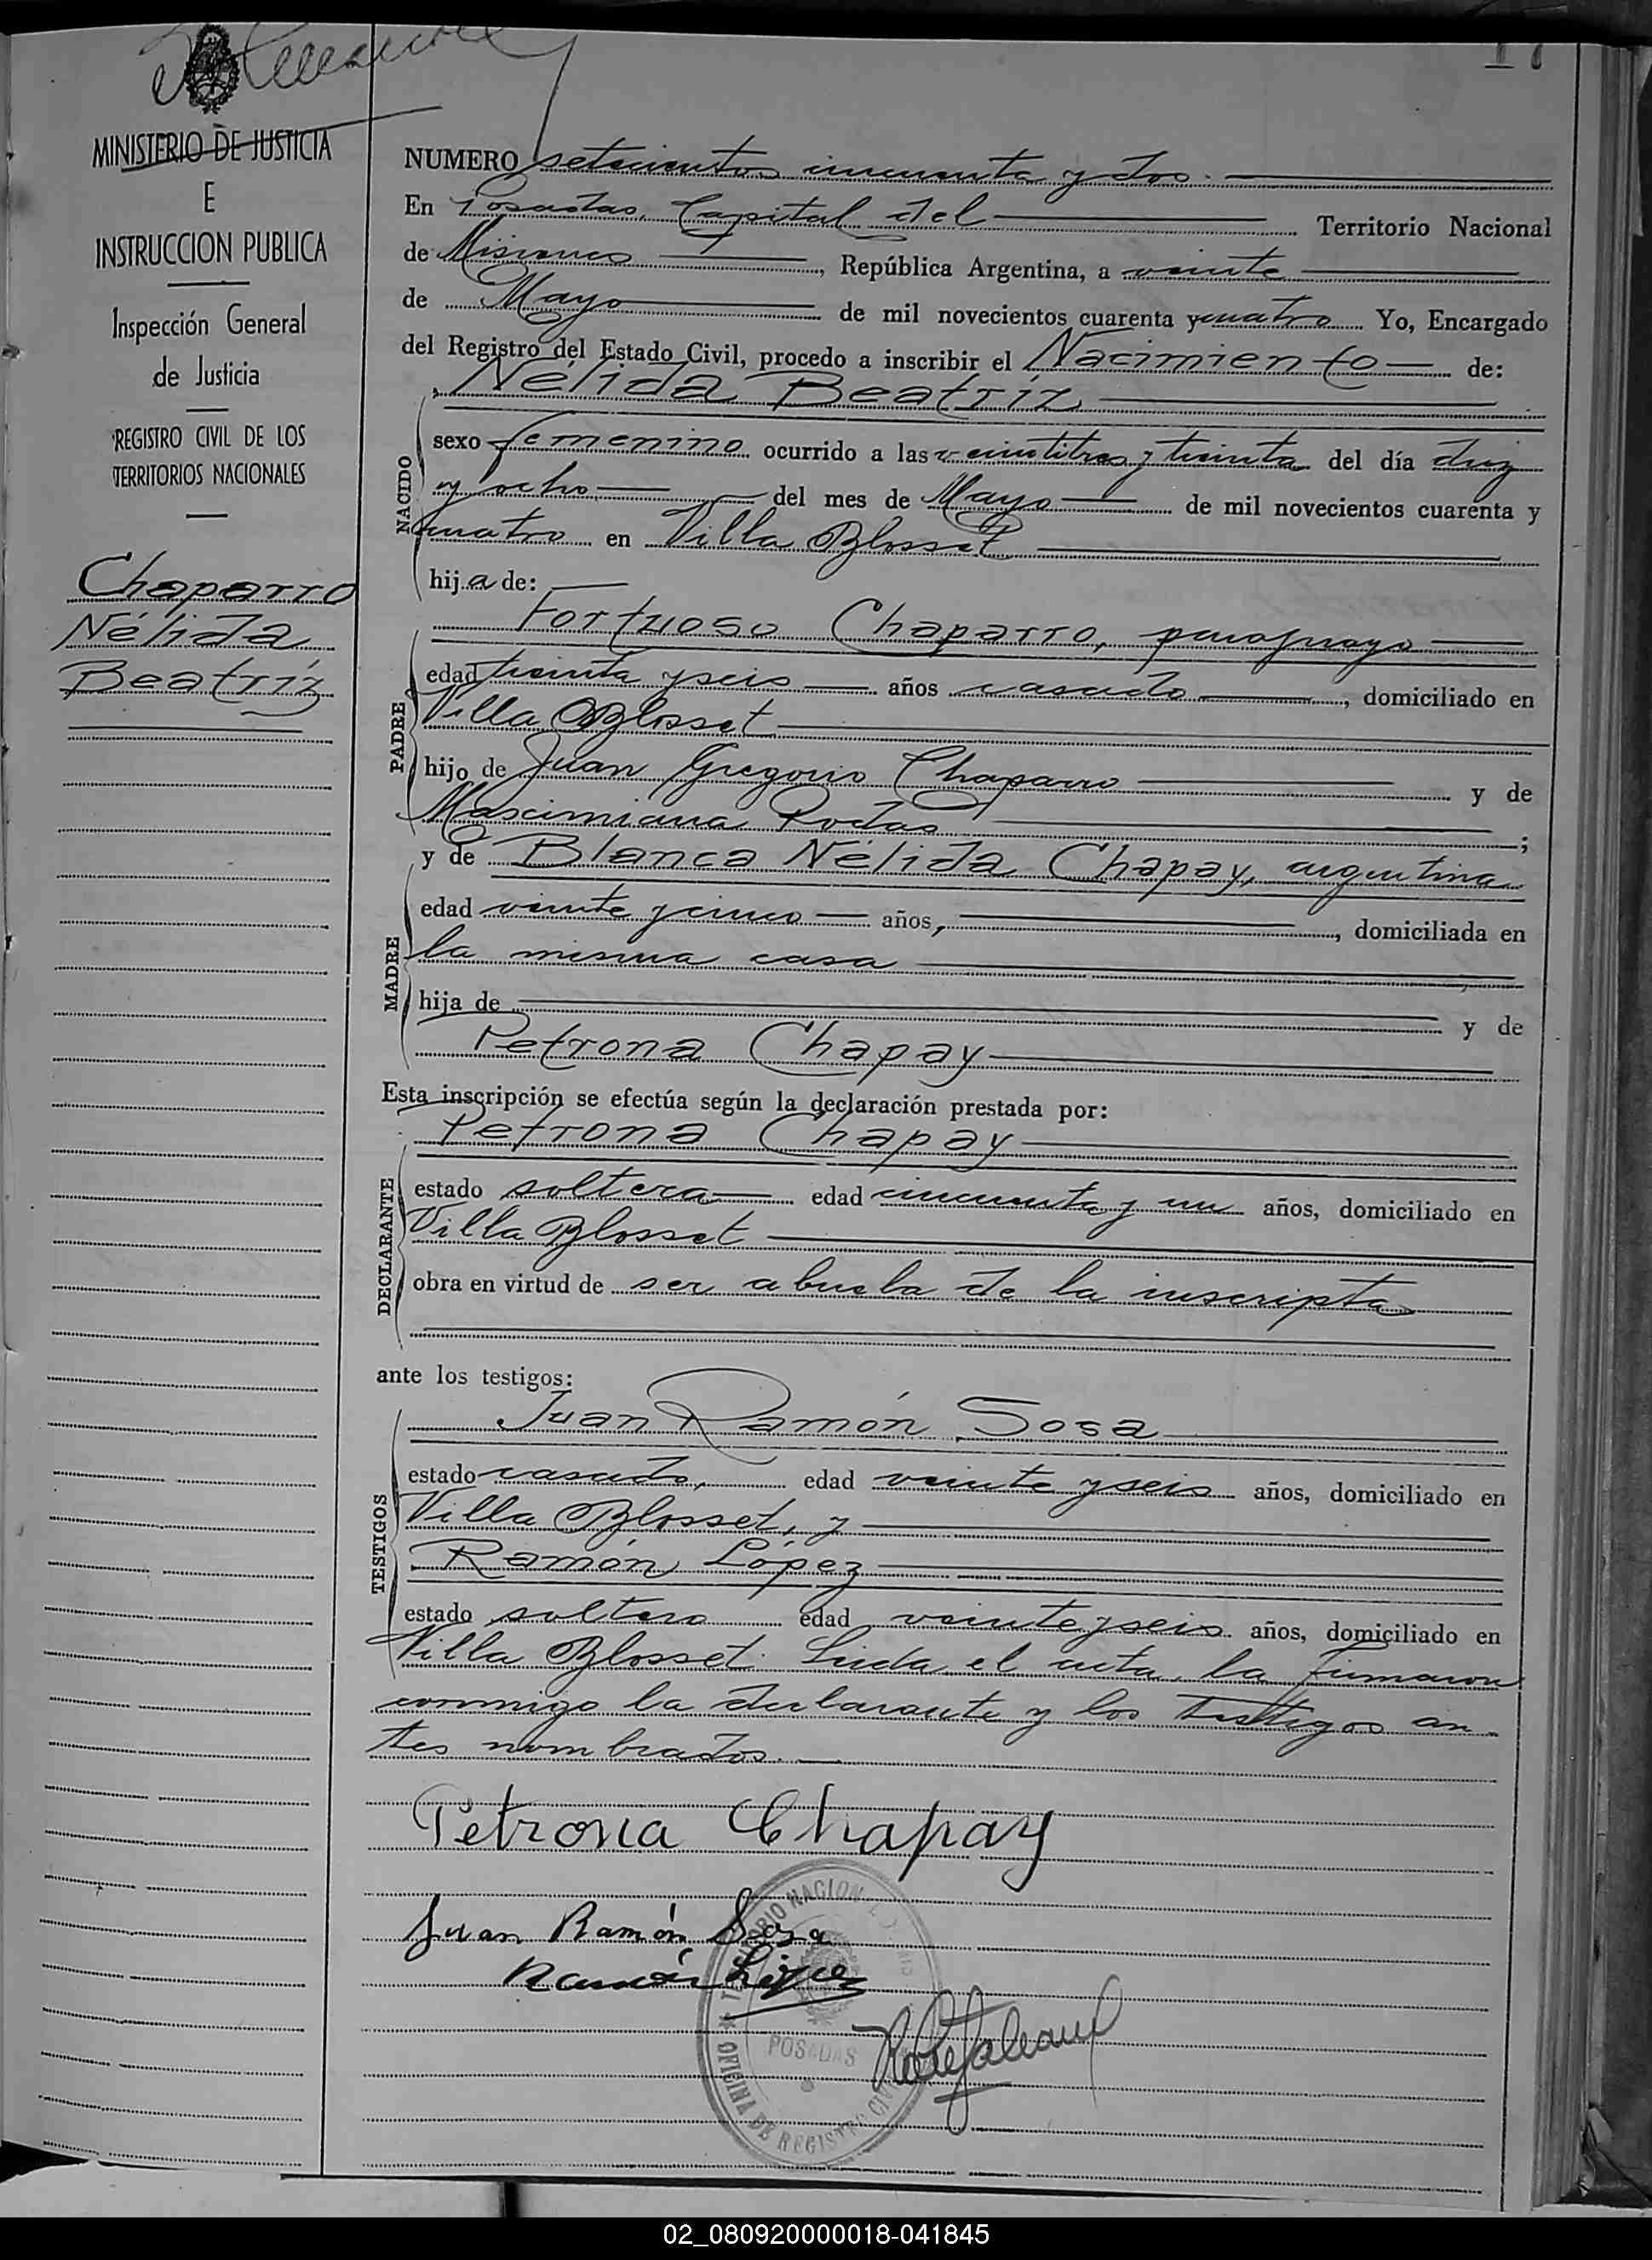 17
MINISTERIO DE JUSTICIA
E
INSTRUCCION PUBLICA
Inspección General
de Justicia
REGISTRO CIVIL DE LOS
TERRITORIOS NACIONALES
Chaparro
Nélida
Beatríz
NUMERO setecientos cincuenta y dos.
En Posadas, Capital del Territorio Nacional
de Misiones, República Argentina, a veinte
de Mayo de mil novecientos cuarenta y cuatro Yo, Encargado
del Registro del Estado Civil, procedo a inscribir el Nacimiento de:
Nélida Beatríz
NACIDO
sexo femenino ocurrido a las veintitres y treinta del día diez
y ocho del mes de Mayo de mil novecientos cuarenta y
cuatro en Villa Blosset
hija de:
Fortuoso Chaparro, paraguayo
PADRE
edad treinta y seis años casado, domiciliado en
Villa Blosset
hijo de Juan Gregorio Chaparro y de
Mascimiana Rodas;
y de Blanca Nélida Chapay, argentina
MADRE
edad veinte y cinco años, domiciliada en
la misma casa
hija de y de
Petrona Chapay
Esta inscripción se efectúa según la declaración prestada por:
Petrona Chapay
DECLARANTE
estado soltera edad cincuenta y un años, domiciliado en
Villa Blosset
obra en virtud de ser abuela de la inscripta
ante los testigos:
Juan Ramón Sosa
TESTIGOS
estado casado, edad veinte y seis años, domiciliado en
Villa Blosset, y
Ramón López
estado soltero edad veinte y seis años, domiciliado en
Villa Blosset. Leida el acta, la firmaron
conmigo la declarante y los testigos an
tes nombrados.
Petrona Chapay
Juan Ramón Sosa
Ramón López
TERRITORIO NACION
POSADAS
OFICINA DE REGISTRO CIV
02_080920000018-041845